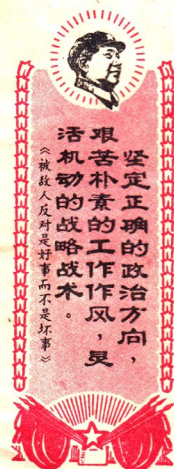 坚定正确的政治方向，
艰苦朴素的工作作风，灵
活机动的战略战术。
《被敌人反对是好事而不是坏事》